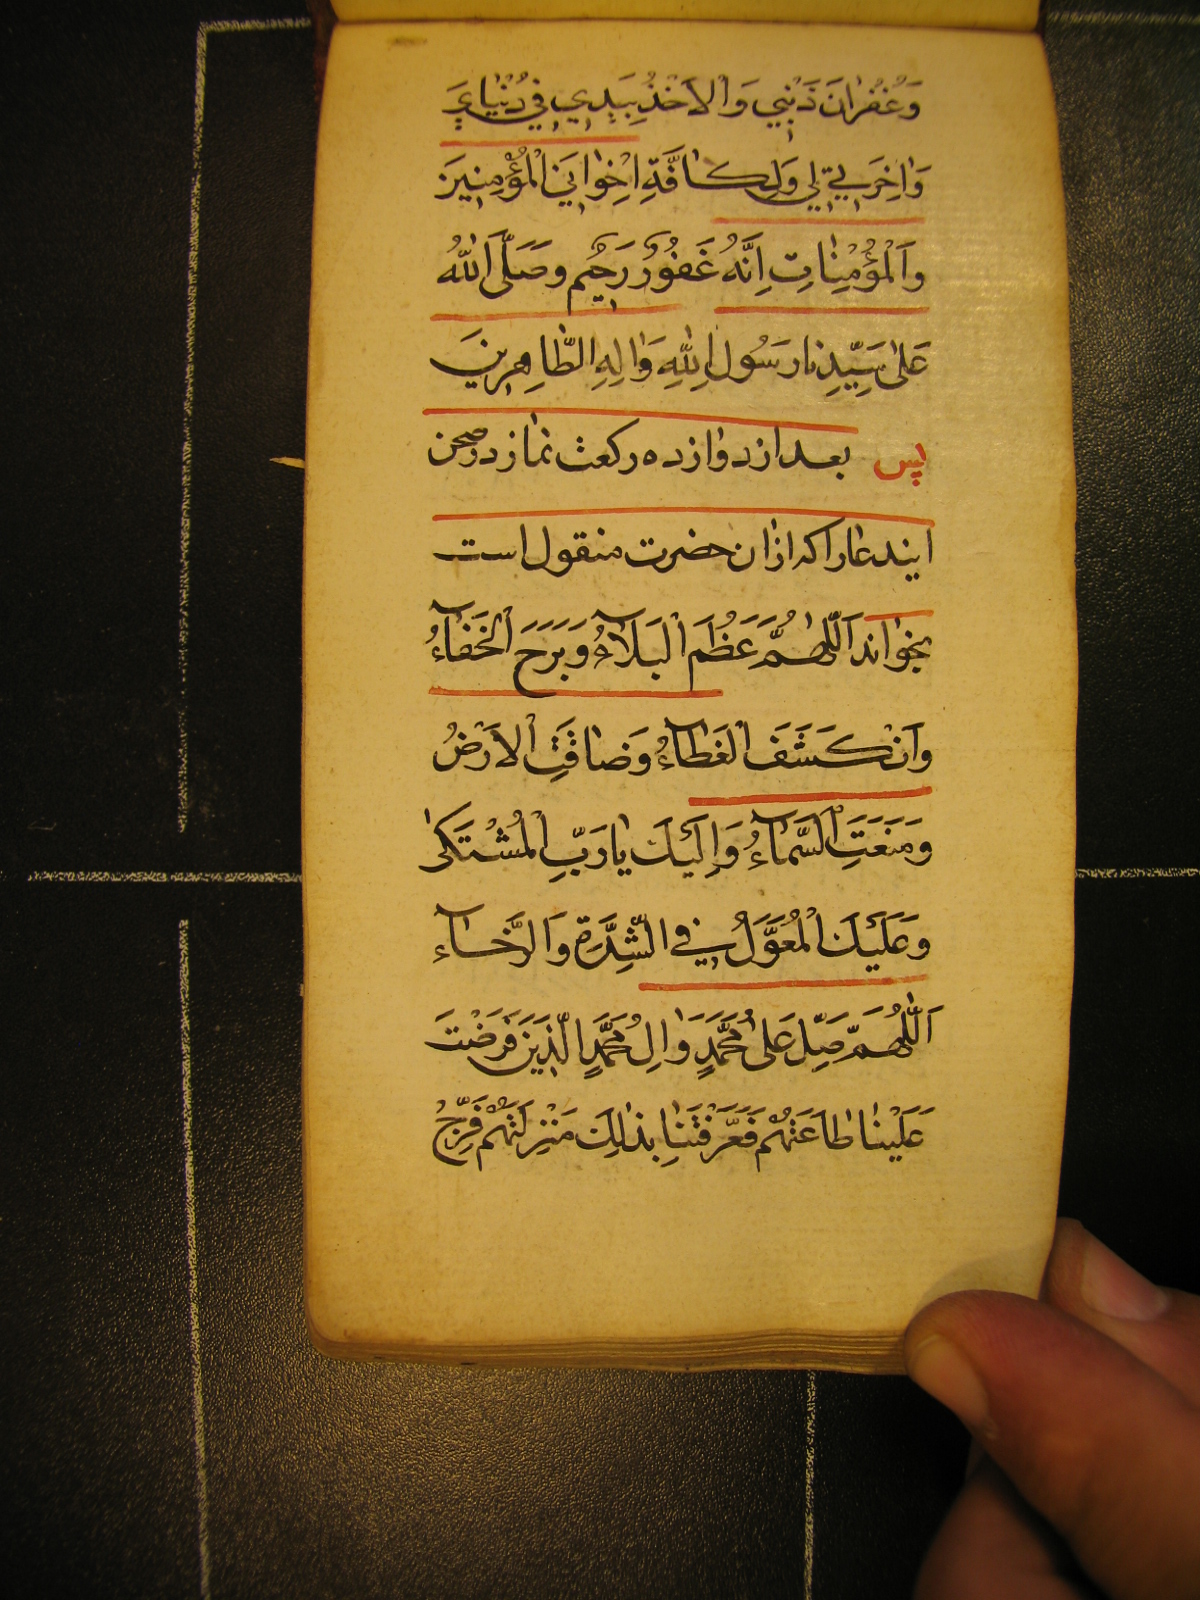 وَغُفْرَانَ ذَنْبِي وَالْاَخْذِ بِيَدِي فِي دُنْيَايَ
وَاٰخِرَتِي لِي وَلِكَافَّةِ اِخْوَانِيَ الْمُؤْمِنِينَ
وَالْمُؤْمِنَاتِ اِنَّهُ غَفُورٌ رَحِيمٌ وَصَلَّى اللّٰهُ
عَلٰى سَيِّدِنَا رَسُولِ اللّٰهِ وَاٰلِهِ الطَّاهِرِينَ
پس بعد از دوازده ركعت نماز در صحن
ايندعا را كه ازان حضرت منقول است
بخواند اَللّٰهُمَّ عَظُمَ الْبَلَآءُ وَبَرَحَ الْخَفَآءُ
وَانْكَشَفَ الْغَطَآءُ وَضَاقَتِ الْاَرْضُ
وَمَنَعَتِ السَّمَآءُ وَاِلَيْكَ يَا رَبِّ الْمُشْتَكٰى
وَعَلَيْكَ الْمُعَوَّلُ فِي الشِّدَّةِ وَالرَّخَآءِ
اَللّٰهُمَّ صَلِّ عَلٰى مُحَمَّدٍ وَاٰلِ مُحَمَّدٍ الَّذِينَ فَرَضْتَ
عَلَيْنَا طَاعَتَهُمْ فَعَرَّفْتَنَا بِذٰلِكَ مَنْزِلَتَهُمْ فَرِّجْ